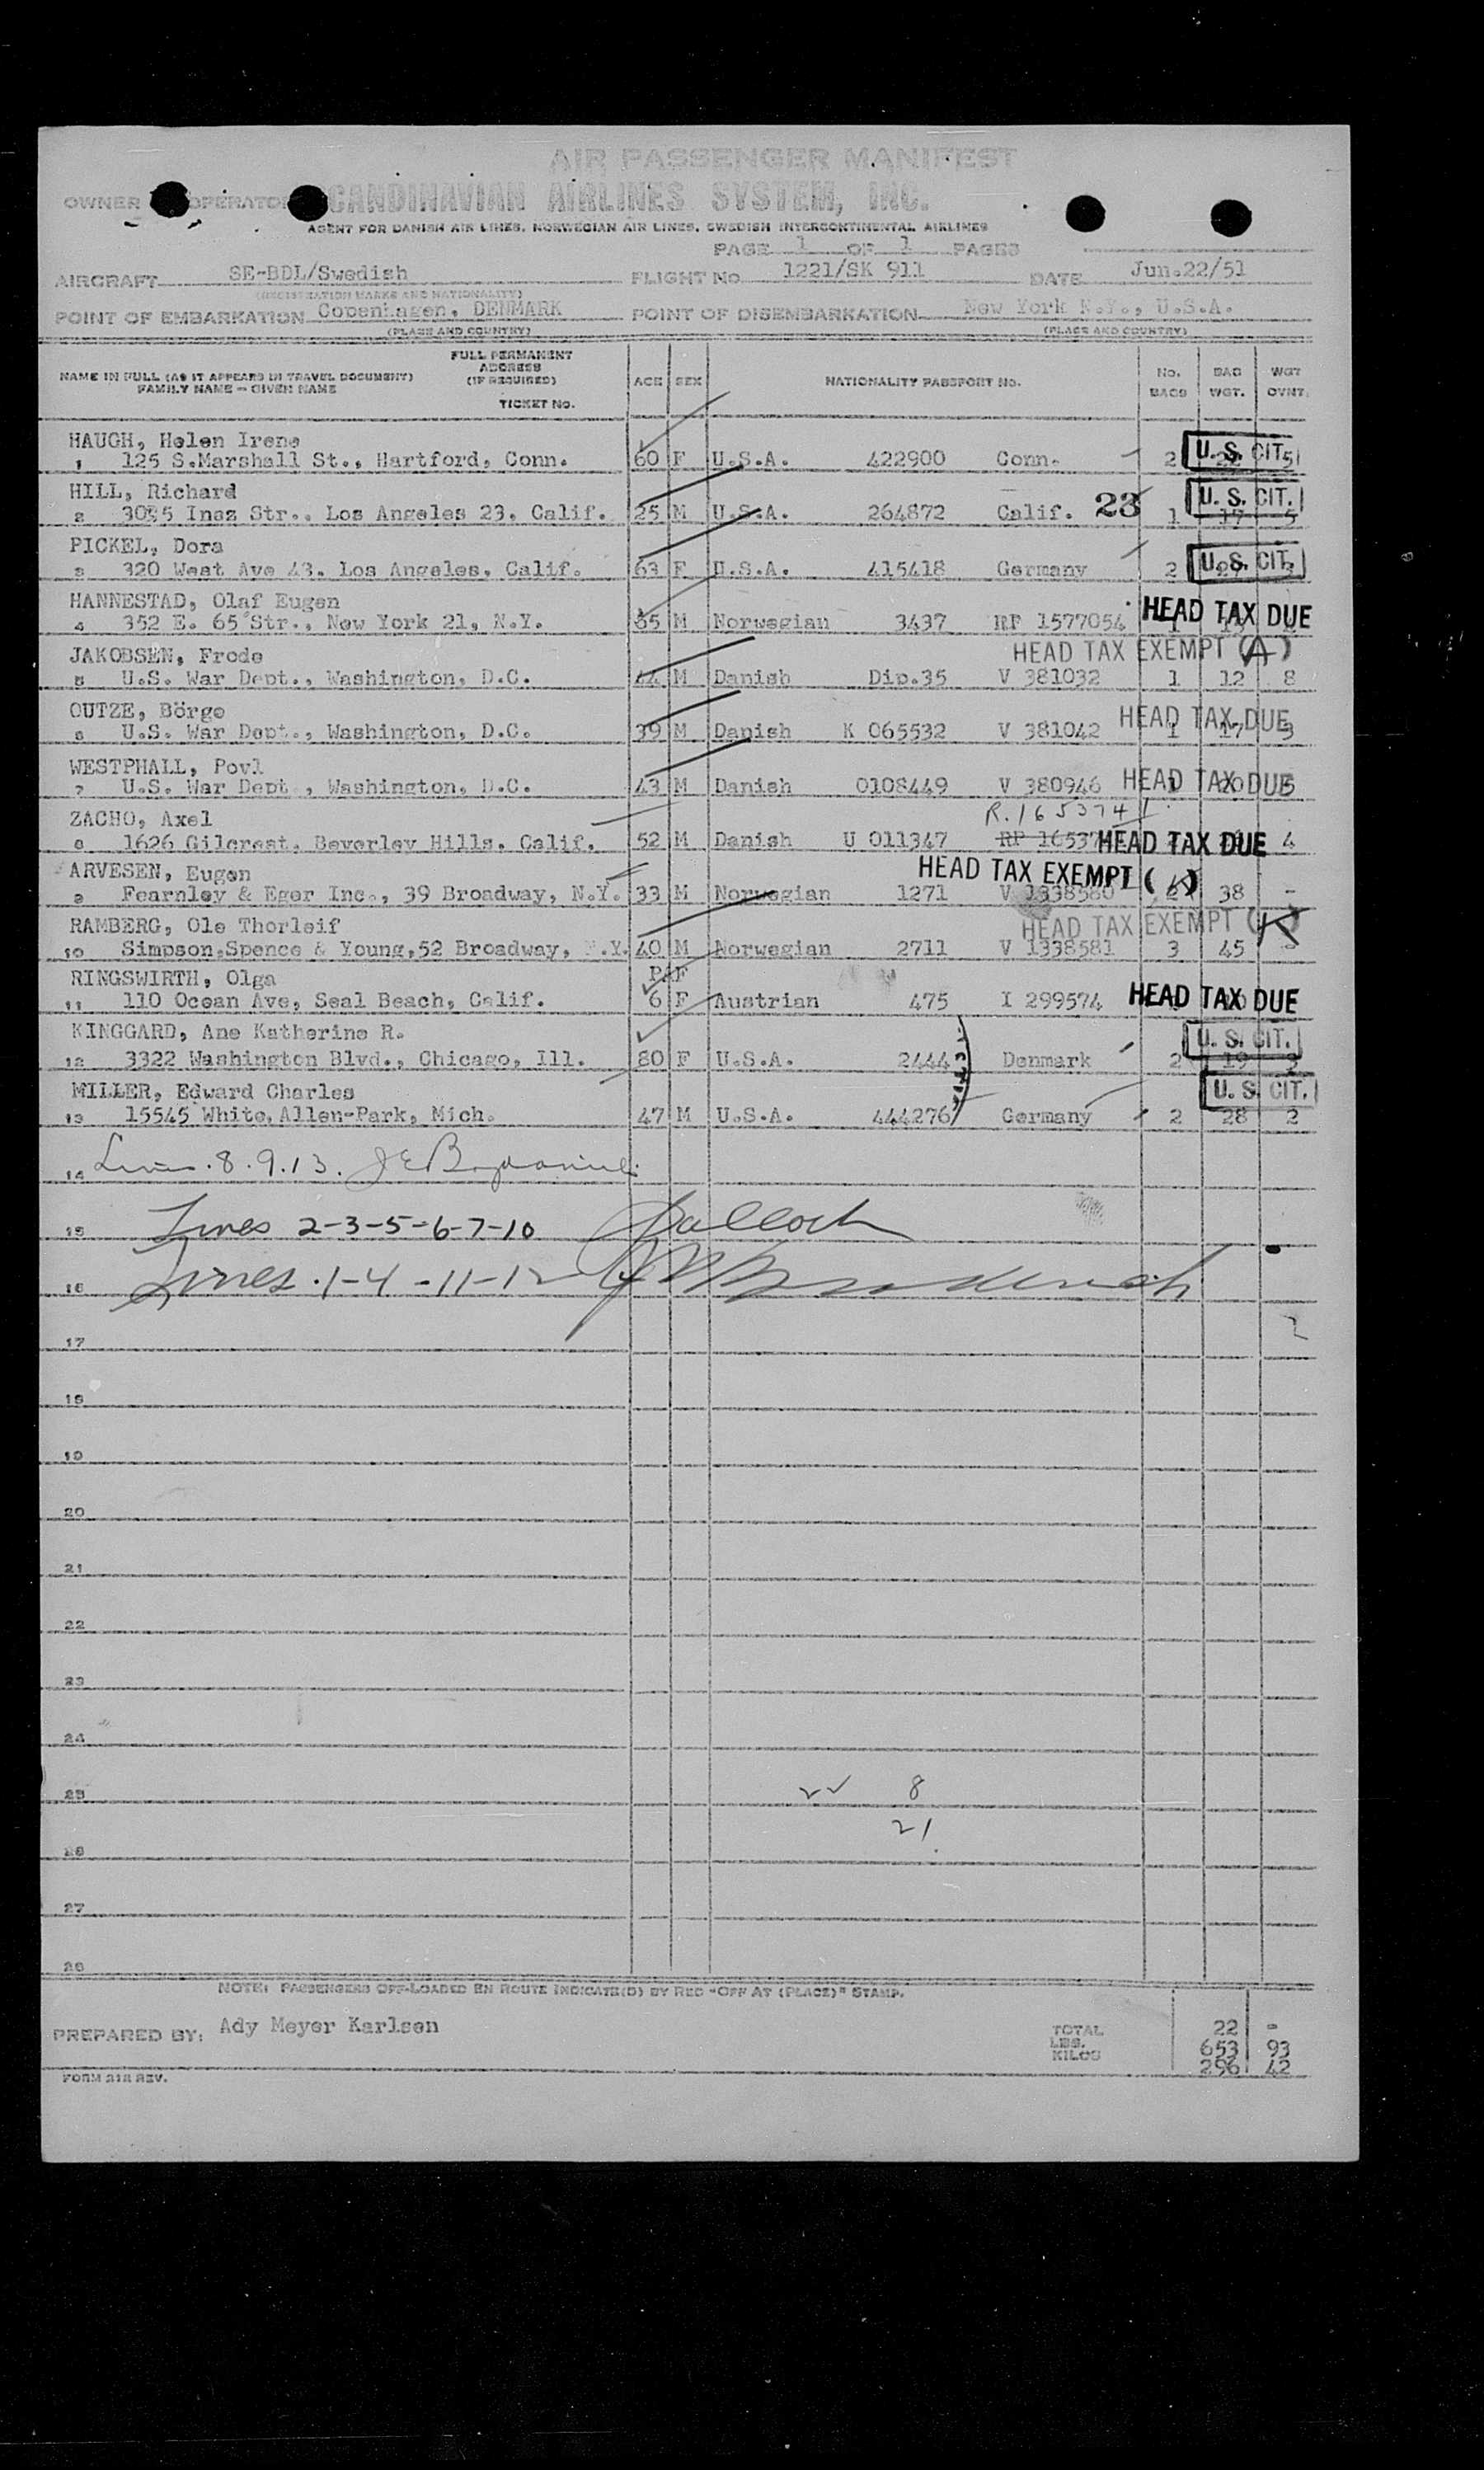 AIR PASSENGER MANIFEST
OWNER OPERATOR SCANDINAVIAN AIRLINES SYSTEM, INC.
AGENT FOR DANISH AIR LINES, NORWEGIAN AIR LINES, SWEDISH INTERCONTINENTAL AIRLINES
PAGE 1 OF 1 PAGES
AIRCRAFT SE-BDL/Swedish FLIGHT No. 1221/SK 911 DATE Jun.22/51
(REGISTRATION MARKS AND NATIONALITY)
POINT OF EMBARKATION Copenhagen, DENMARK POINT OF DISEMBARKATION New York N.Y., U.S.A.
(PLACE AND COUNTRY) (PLACE AND COUNTRY)
NAME IN FULL (AS IT APPEARS IN TRAVEL DOCUMENT) FAMILY NAME - GIVEN NAME FULL PERMANENT ADDRESS (IF REQUIRED) TICKET NO. AGE SEX NATIONALITY PASSPORT NO. No. BAGS BAG WGT. WGT OVNT.
HAUGH, Helen Irene
1 125 S.Marshall St., Hartford, Conn. 60 F U.S.A. 422900 Conn. 2 U.S. CIT. 5
HILL, Richard
2 3095 Inez Str., Los Angeles 23, Calif. 25 M U.S.A. 264872 Calif. 23 1 17 5 U. S. CIT.
PICKEL, Dora
3 320 West Ave 43, Los Angeles, Calif. 63 F U.S.A. 415418 Germany 2 U.S. CIT. 3
HANNESTAD, Olaf Eugen
4 352 E. 65 Str., New York 21, N.Y. 65 M Norwegian 3437 RP 1577054 HEAD TAX DUE
JAKOBSEN, Frode HEAD TAX EXEMPT (A)
5 U.S. War Dept., Washington, D.C. 44 M Danish Dip.35 V 381032 1 12 8
OUTZE, Börge
6 U.S. War Dept., Washington, D.C. 39 M Danish K 065532 V 381042 HEAD TAX DUE 1 17 3
WESTPHALL, Povl
7 U.S. War Dept., Washington, D.C. 43 M Danish 0108449 V 380946 HEAD TAX DUE 20 5
ZACHO, Axel R.1653741
8 1626 Gilcrest, Beverley Hills, Calif. 52 M Danish U 011347 RP 16537 HEAD TAX DUE 4
ARVESEN, Eugen HEAD TAX EXEMPT (K)
9 Fearnley & Eger Inc., 39 Broadway, N.Y. 33 M Norwegian 1271 V 1338580 2 38 -
RAMBERG, Ole Thorleif HEAD TAX EXEMPT (K)
10 Simpson,Spence & Young,52 Broadway, N.Y. 40 M Norwegian 2711 V 1338581 3 45 -
RINGSWIRTH, Olga
11 110 Ocean Ave, Seal Beach, Calif. 6 F Austrian 475 I 299574 HEAD TAX DUE
KINGGARD, Ane Katherine R. U. S. CIT.
12 3322 Washington Blvd., Chicago, Ill. 80 F U.S.A. 2444 Denmark 2 19 3
MILLER, Edward Charles U. S. CIT.
13 15545 White, Allen-Park, Mich. 47 M U.S.A. 444276 Germany 2 28 2
14 Lines .8.9.13.
15 Lines 2-3-5-6-7-10
16 Lines .1-4-11-12
17
18
19
20
21
22
23
24
25 8
21
26
27
28
NOTE: PASSENGERS OFF-LOADED EN ROUTE INDICATE(D) BY RED "OFF AT (PLACE)" STAMP.
PREPARED BY: Ady Meyer Karlsen TOTAL 22 -
LBS. 653 93
KILOS 296 42
FORM 218 REV.